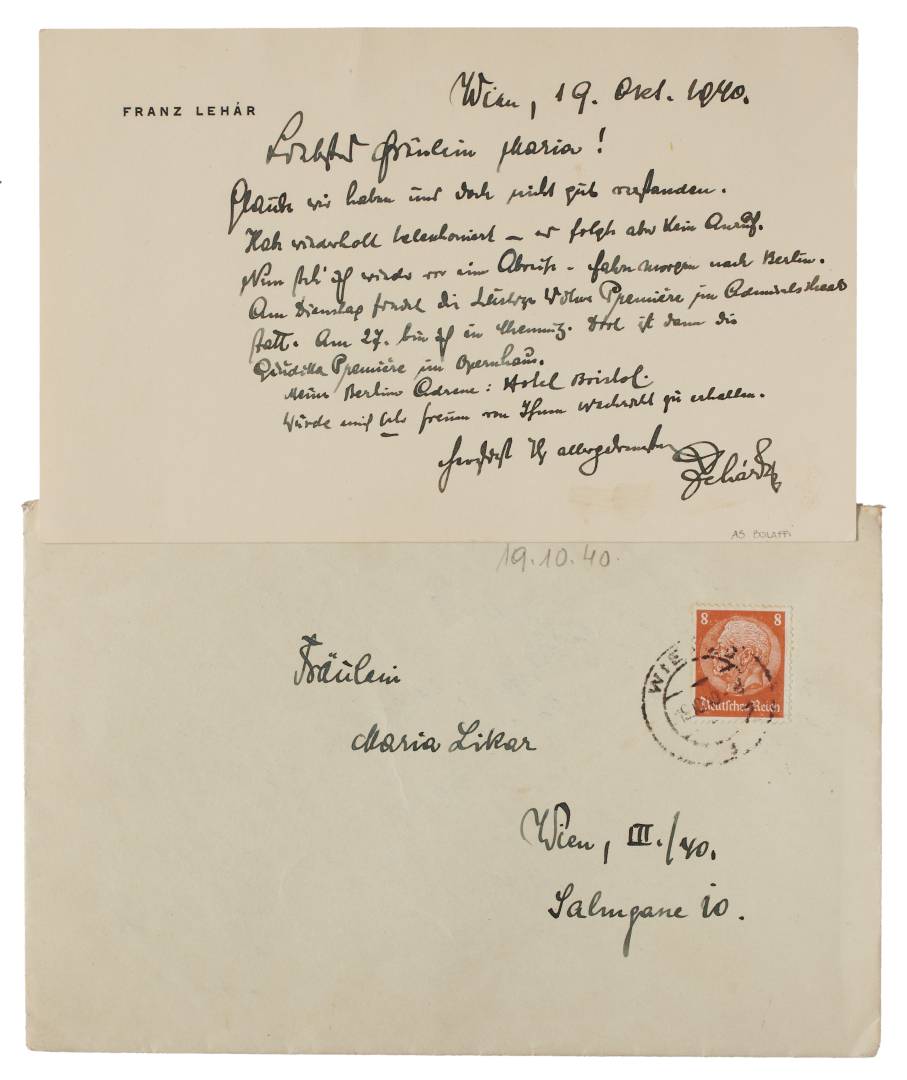 FRANZ LEHÁR
Wien, 19. Okt. 1940.
Liebstes Fräulein Maria!
Glaube wir haben uns doch nicht gut verstanden.
Habe wiederholt telephoniert – es folgte aber kein Anruf.
Nun steh' ich wieder vor einer Abreise - fahre morgen nach Berlin.
Am Dienstag findet die Lustige Witwe Première im Admiralspalast
statt. Am 27. bin ich in Chemnitz. Dort ist dann die
Giuditta Première im Opernhaus.
Meine Berliner Adresse: Hotel Bristol.
Würde mich sehr freuen von Ihnen Nachricht zu erhalten.
Herzlichst Ihr allergetreuester
Lehár
AS BOLAFFI
19.10.40.
8 8
Deutsches Reich
WIEN
Fräulein
Maria Likar
Wien, III./40.
Salmgasse 10.